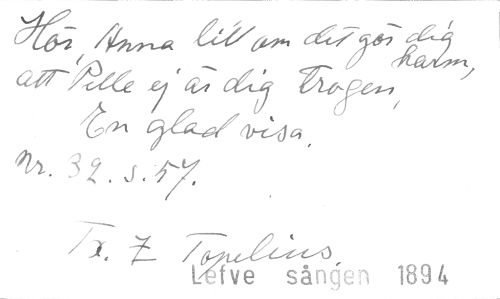 Hör, Anna lill om det gör dig
harm,
att Pelle ej är dig trogen,
En glad visa.
Nr. 32. s. 57.
Tx. Z Topelius.
Lefve sången 1894